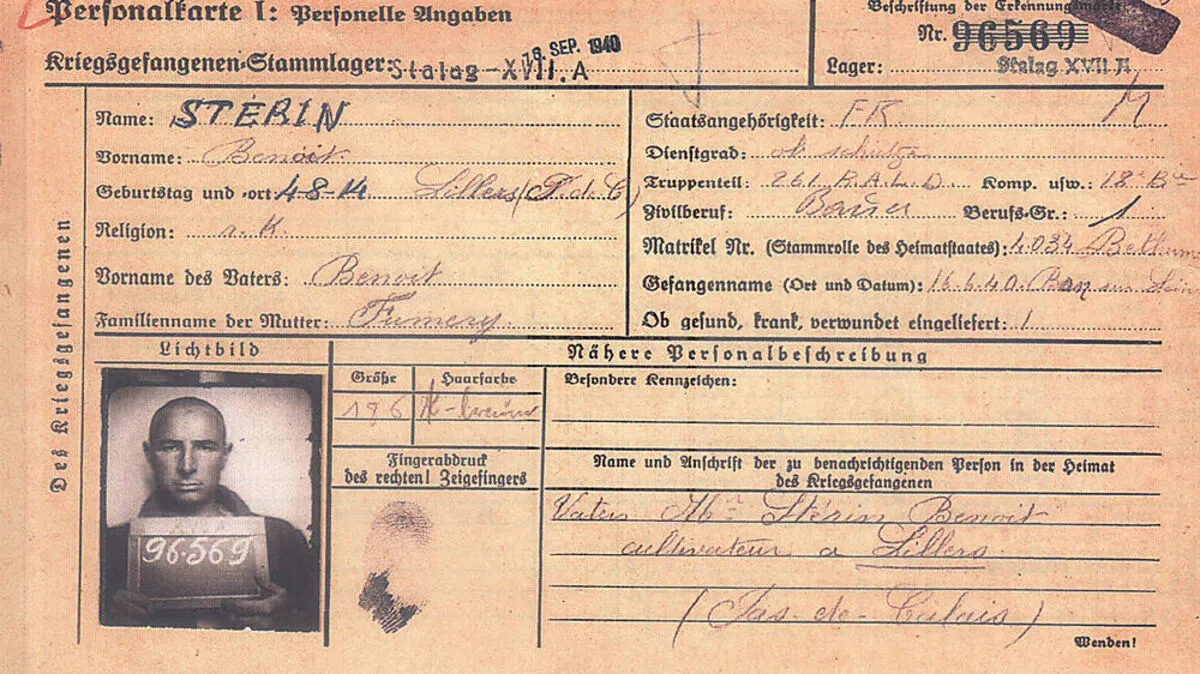 Personalkarte I: Personelle Angaben
Beschriftung der Erkennungsmarke
Nr. 96569
Kriegsgefangenen-Stammlager: Stalag-XVII.A
18 SEP. 1940
Lager: Stalag XVII A
Des Kriegsgefangenen
Name: STÉRIN
Vorname: Benoit
Geburtstag und -ort: 4-8-14 Lillers (P. de C)
Religion: r. K.
Vorname des Vaters: Benoit
Familienname der Mutter: Fumery
Staatsangehörigkeit: FR.
Dienstgrad: schütze
Truppenteil: 261 R.A.L.D. Komp. usw.: 18e Bie
Zivilberuf: Bauer Berufs-Gr.: 1
Matrikel Nr. (Stammrolle des Heimatstaates): 4.034
Gefangenname (Ort und Datum): 16.6.40
Ob gesund, krank, verwundet eingeliefert: 1
Lichtbild
Nähere Personalbeschreibung
Größe
Haarfarbe
Besondere Kennzeichen:
96.569
Fingerabdruck
des rechten! Zeigefingers
Name und Anschrift der zu benachrichtigenden Person in der Heimat
des Kriegsgefangenen
Vater Mr Stérin Benoit
cultivateur a Lillers
(Pas-de-Calais)
Wenden!